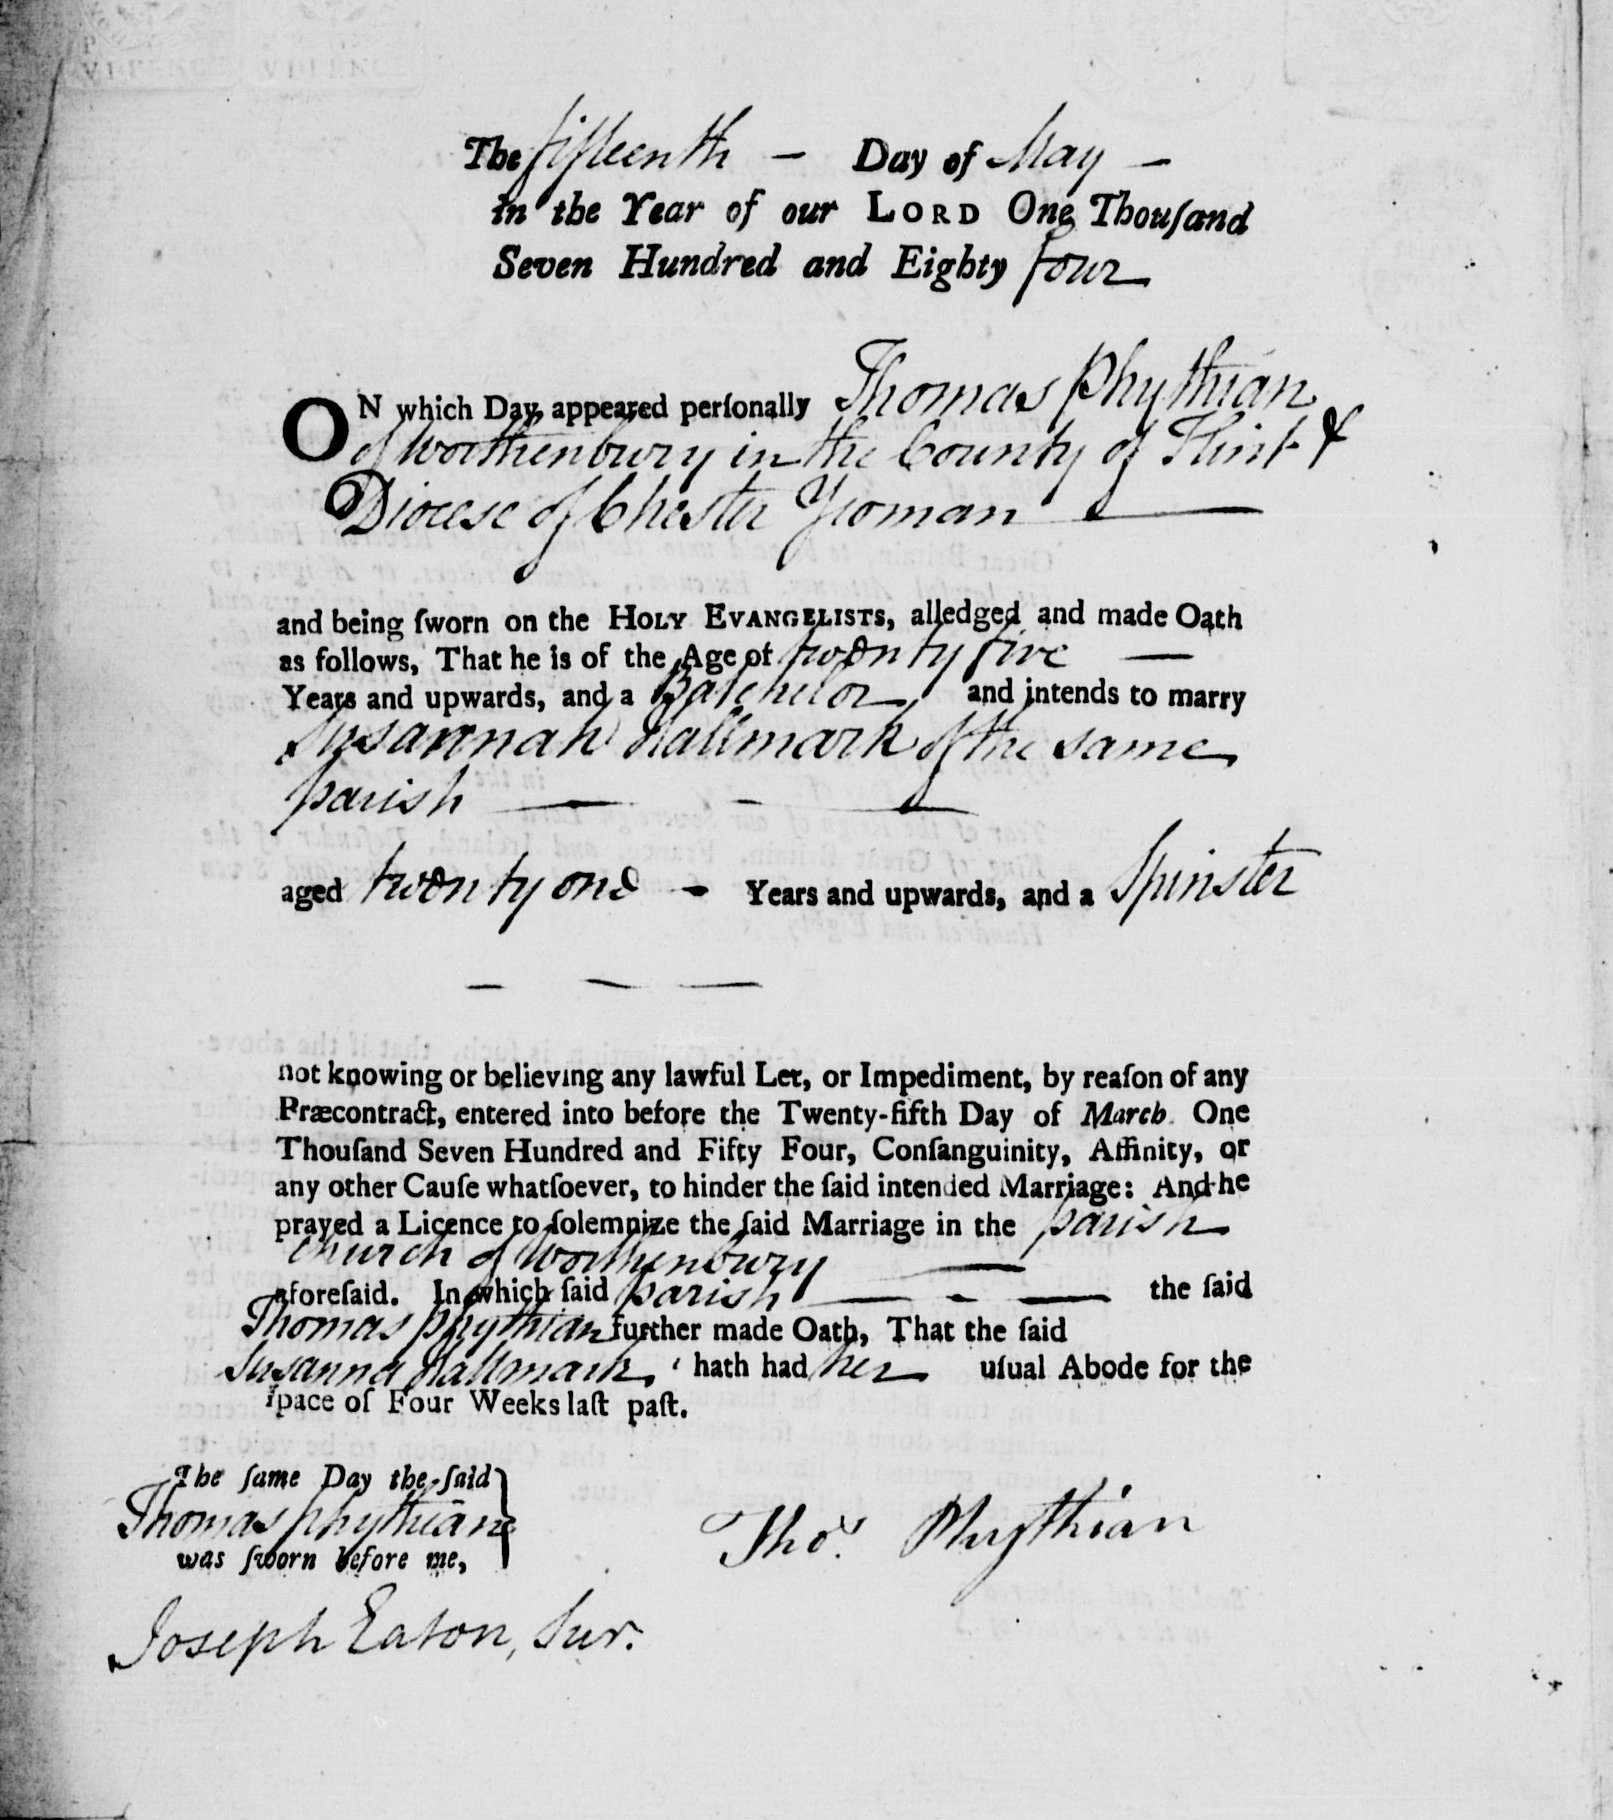 The fifteenth — Day of May —
in the Year of our LORD One Thouſand
Seven Hundred and Eighty four
ON which Day, appeared perſonally Thomas Phythian
of Worthenbury in the County of Flint &
Diocese of Chester Yeoman —
and being ſworn on the HOLY EVANGELISTS, alledged and made Oath
as follows, That he is of the Age of twenty five —
Years and upwards, and a Batchelor and intends to marry
Susannah Hallmark of the same
parish — - —
aged twenty one - Years and upwards, and a Spinster
— — —
not knowing or believing any lawful Let, or Impediment, by reaſon of any
Præcontract, entered into before the Twenty-fifth Day of March One
Thouſand Seven Hundred and Fifty Four, Conſanguinity, Affinity, or
any other Cauſe whatſoever, to hinder the ſaid intended Marriage: And he
prayed a Licence to ſolemnize the ſaid Marriage in the parish
Church of Worthenbury —
aforeſaid. In which ſaid parish — - — the ſaid
Thomas Phythian further made Oath, That the ſaid
Susanna Hallmark, hath had her uſual Abode for the
ſpace of Four Weeks laſt paſt.
The ſame Day the ſaid
Thomas Phythian
was ſworn before me,
Thos. Phythian
Joseph Eaton, Sur.